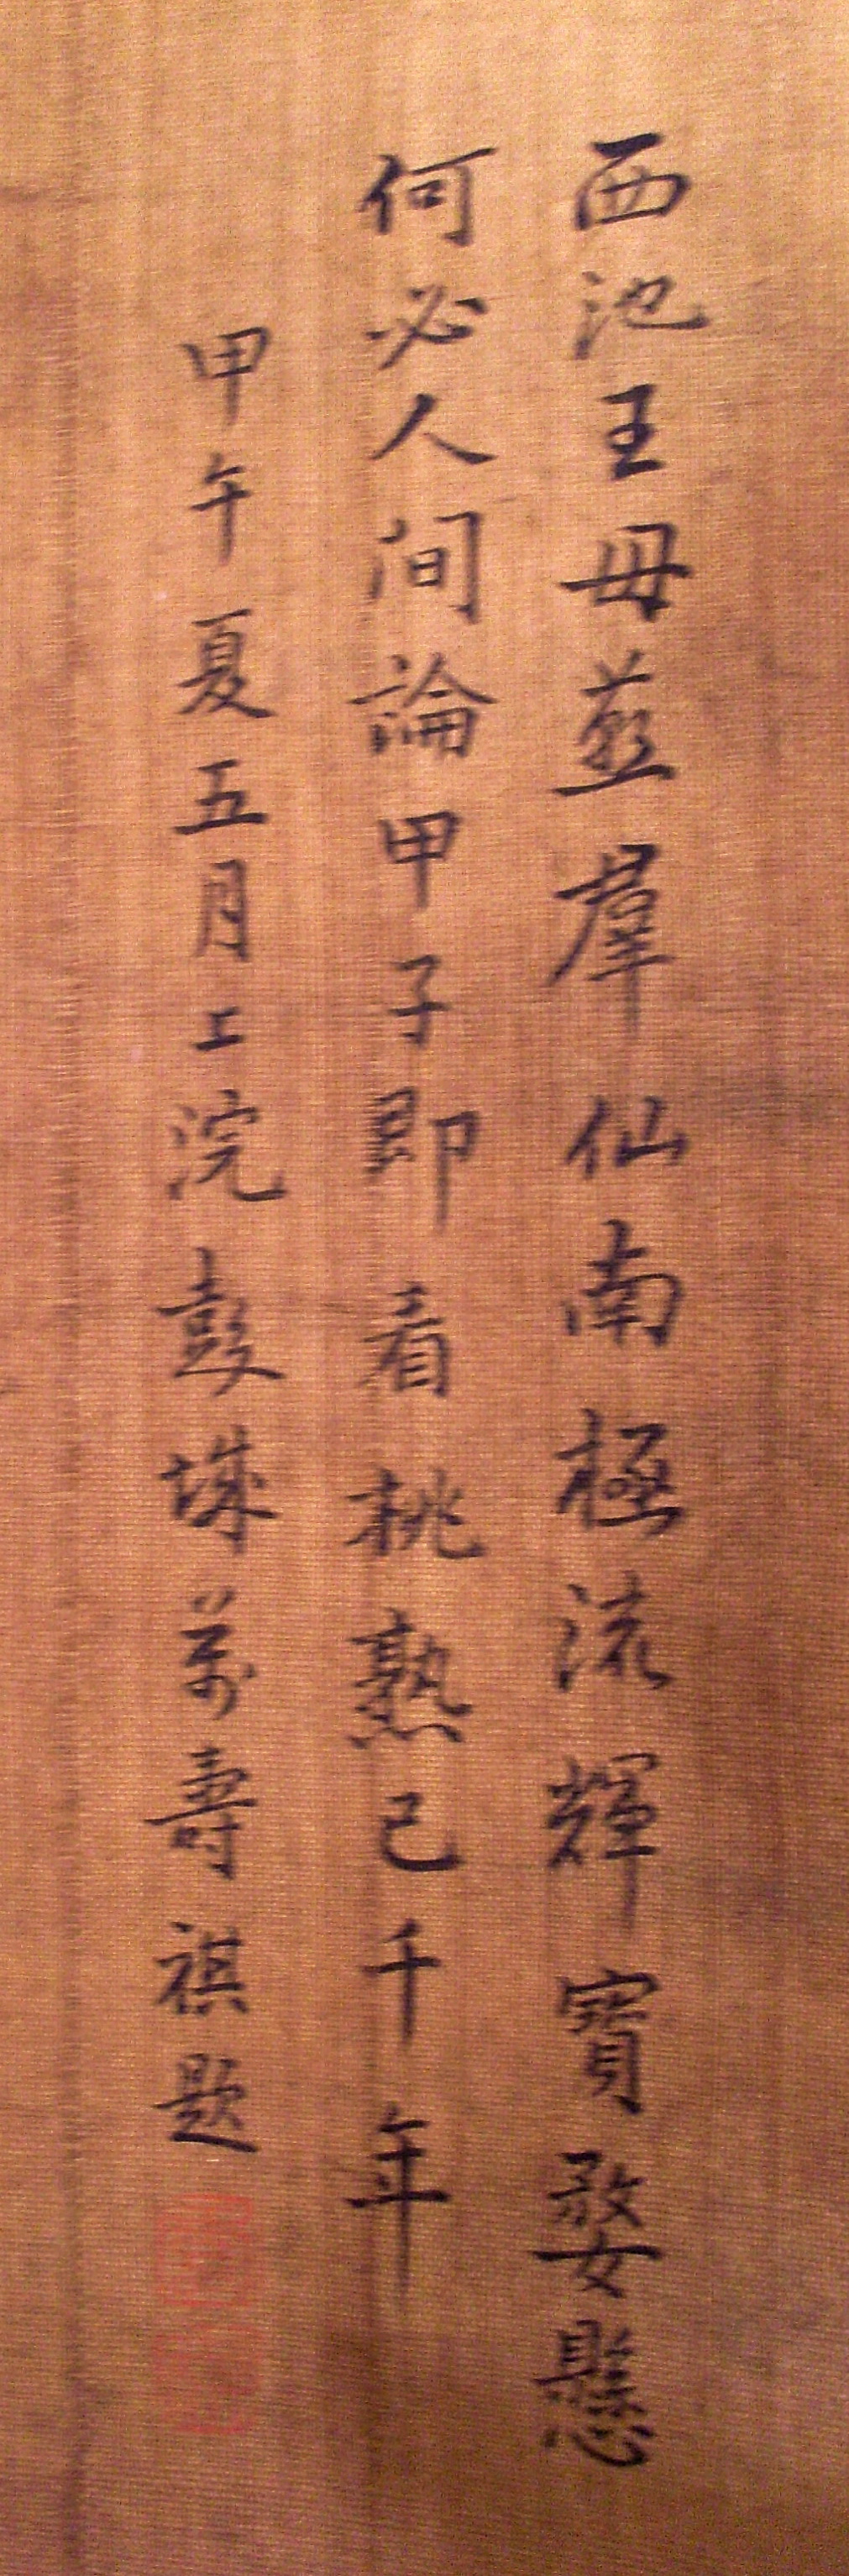 西池王母燕羣仙南極流輝寶婺懸
何必人间論甲子即看桃熟已千年
甲午夏五月上浣彭城萬壽祺題